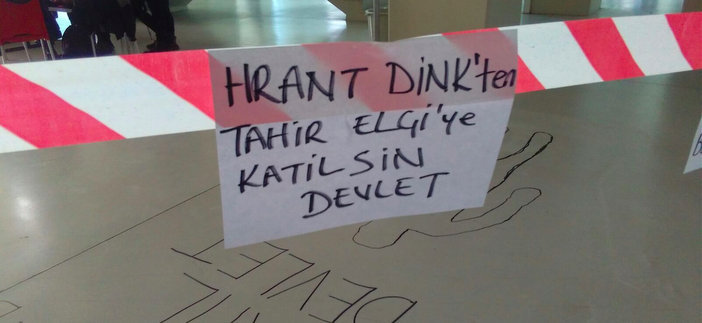 HRANT DİNK'ten
TAHİR ELÇİ'ye
KATİLSİN
DEVLET